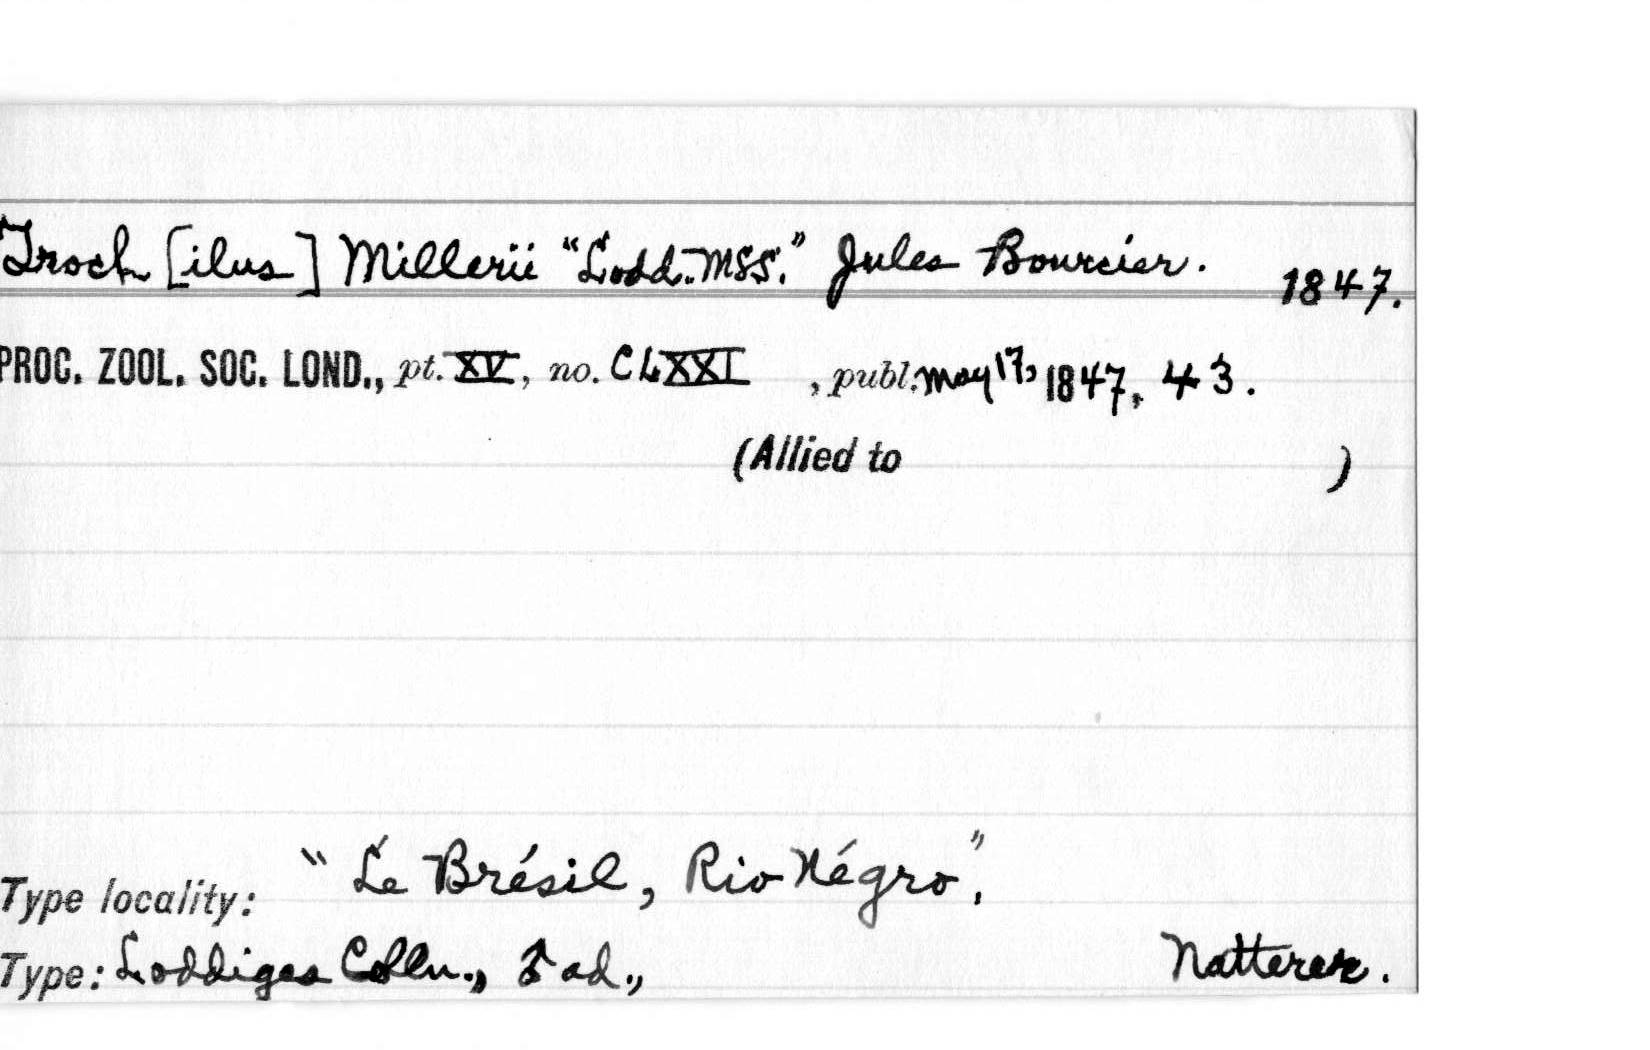 Troch [ilus] Millerii "Lodd. MSS." Jules Bourcier. 1847.
PROC. ZOOL. SOC. LOND., pt. XV, no. CLXXI, publ. May 17, 1847, 43.
(Allied to )
Type locality: "Le Brésil, Rio Négro",
Type: Loddiges Colln., ♂ ad., Natterer.